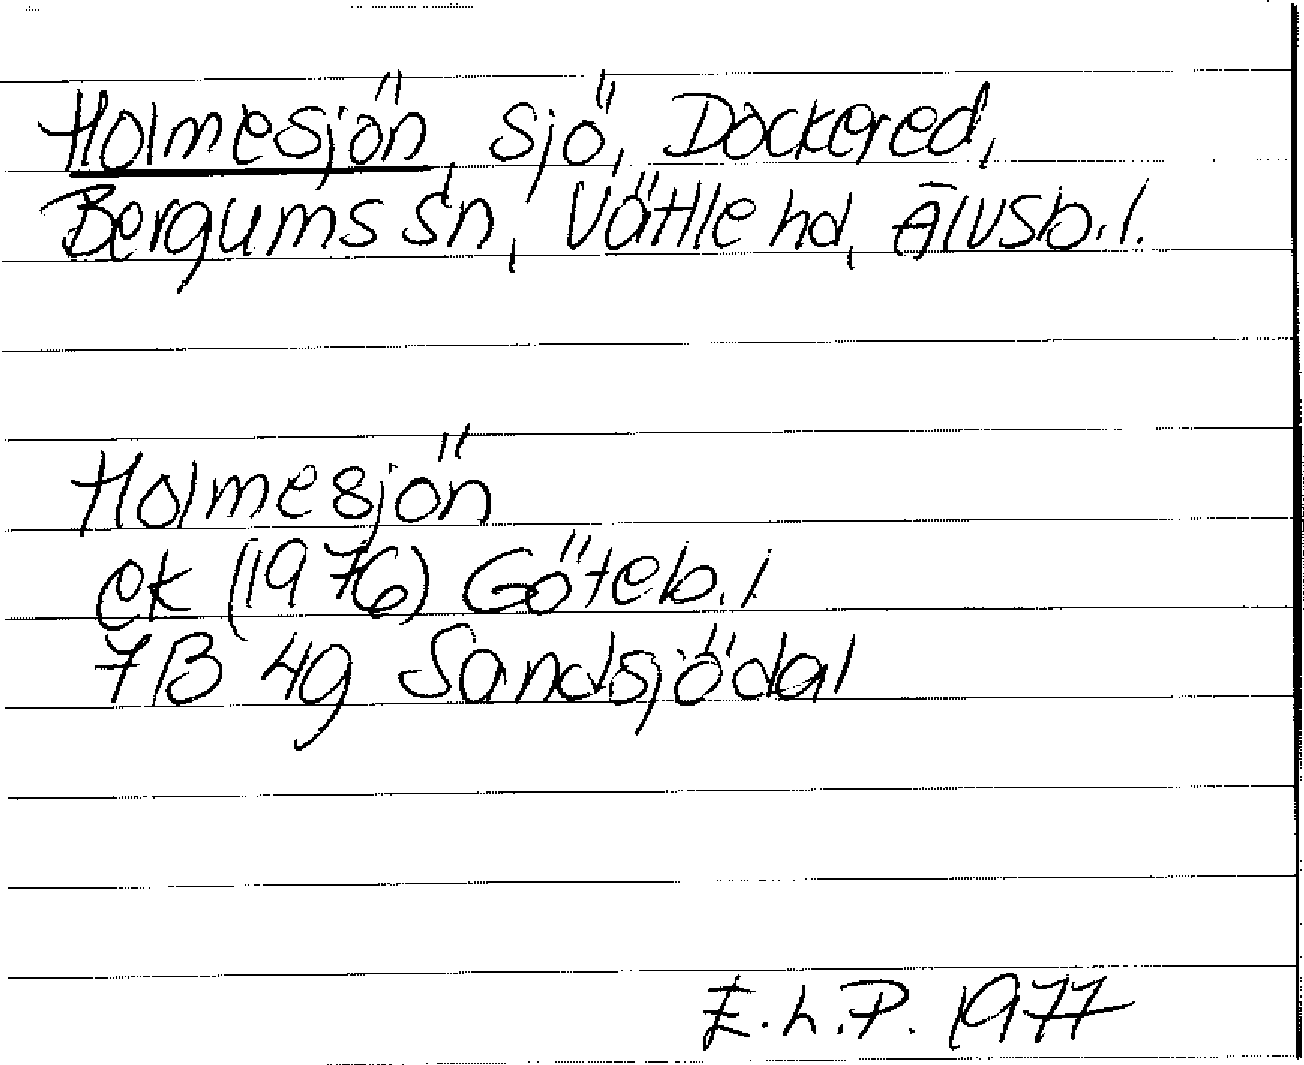 Holmesjön, sjö, Dockered,
Bergums sn, Vättle hd, Älvsb. l.
Holmesjön
ek (1976) Göteb. l
7B 4g Sandsjödal
E. L. P. 1977